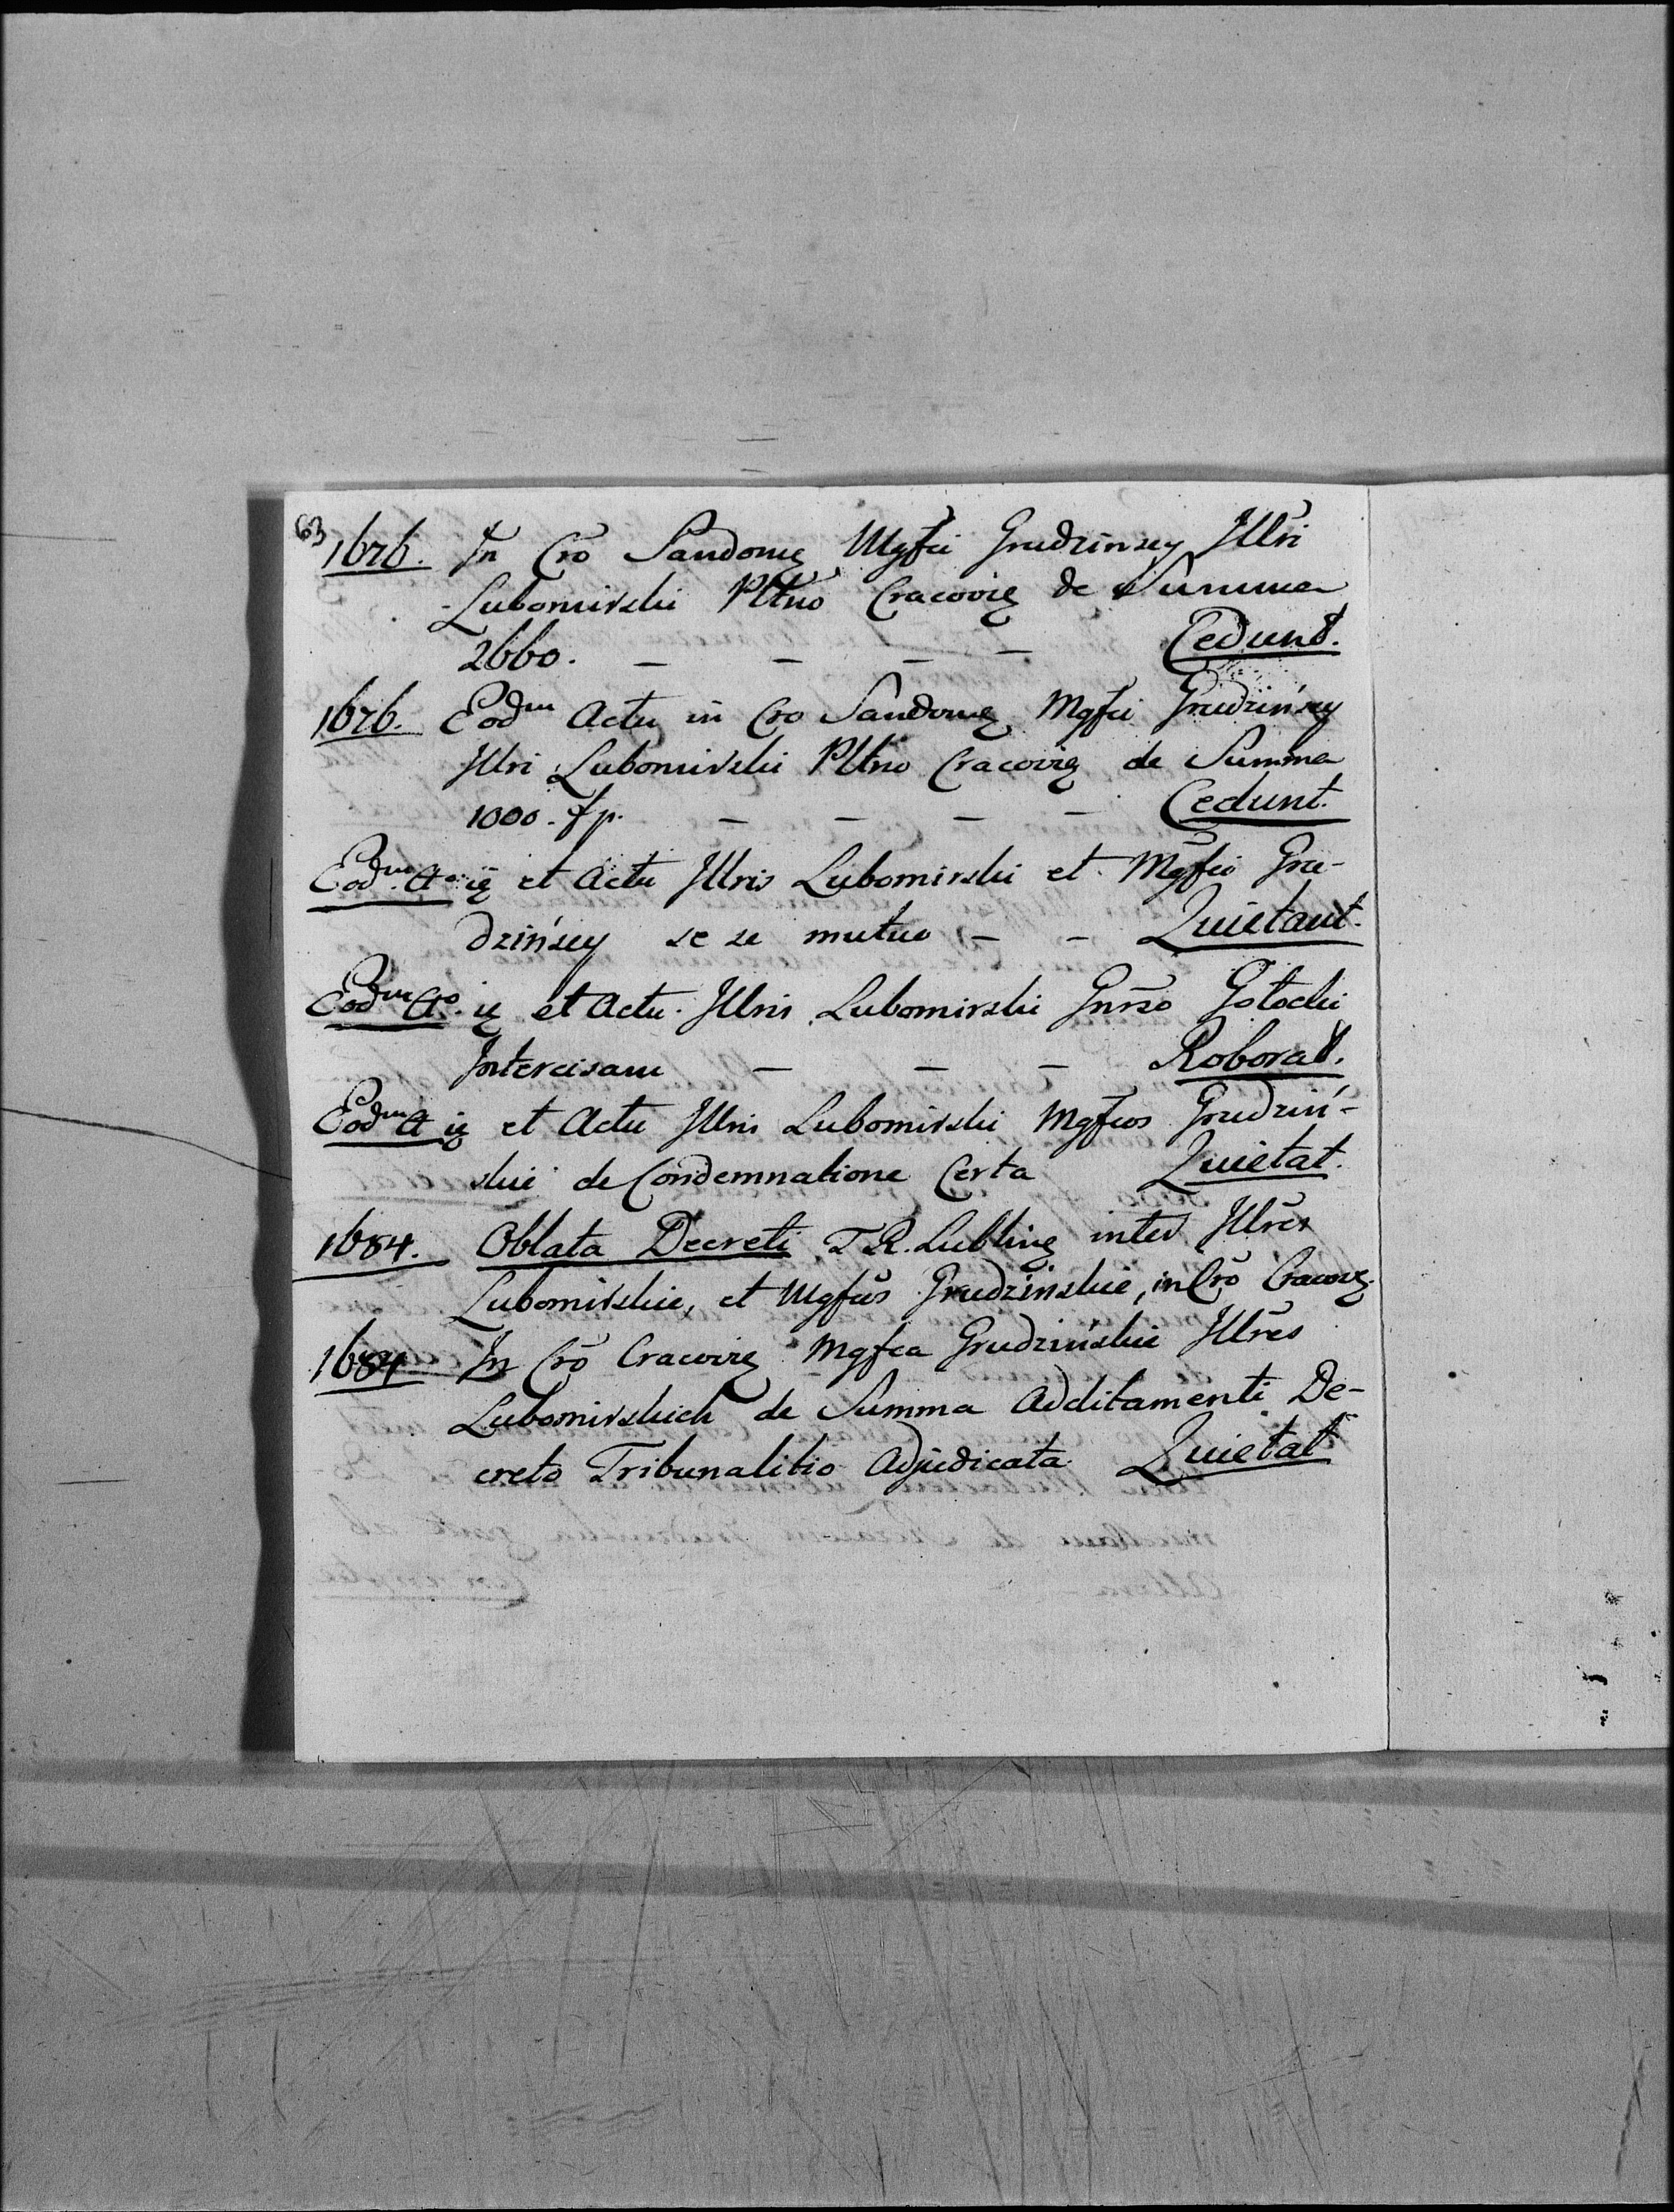 63
1676. In Cro Sandomę Mgfci Grudzinscy Illri
Lubomirski Pltno Cracovię de Summa
2660. — — — — Cedunt.
1676. Eodm Actu in Cro Sandomę Mgfci Grudzińscy
Illri Lubomirski Pltno Cracovię de Summa
1000 - fp. — — — — Cedunt.
Eodm Ao ię et Actu Illris Lubomirski et Mgfci Gru-
dzińscy se se mutuo — — Quietant.
Eodm Ao ię et Actu. Illris Lubomirski Gnrso
Intercisam — — — Roborat.
Eodm A ię et Actu Illris Lubomirski Mgfcos Grudziń-
skie de Condemnatione Certa Quietat.
1684. Oblata Decreti T. R. Lublinę inter Illres
Lubomirskie, et Mgfcos Grudzinskie, in Cro Cracovę.
1684 In Cro Cracovię Mgfca Grudzińskie Illres
Lubomirskich de Summa Additamenti De-
creto Tribunalitio Adjudicata Quietat